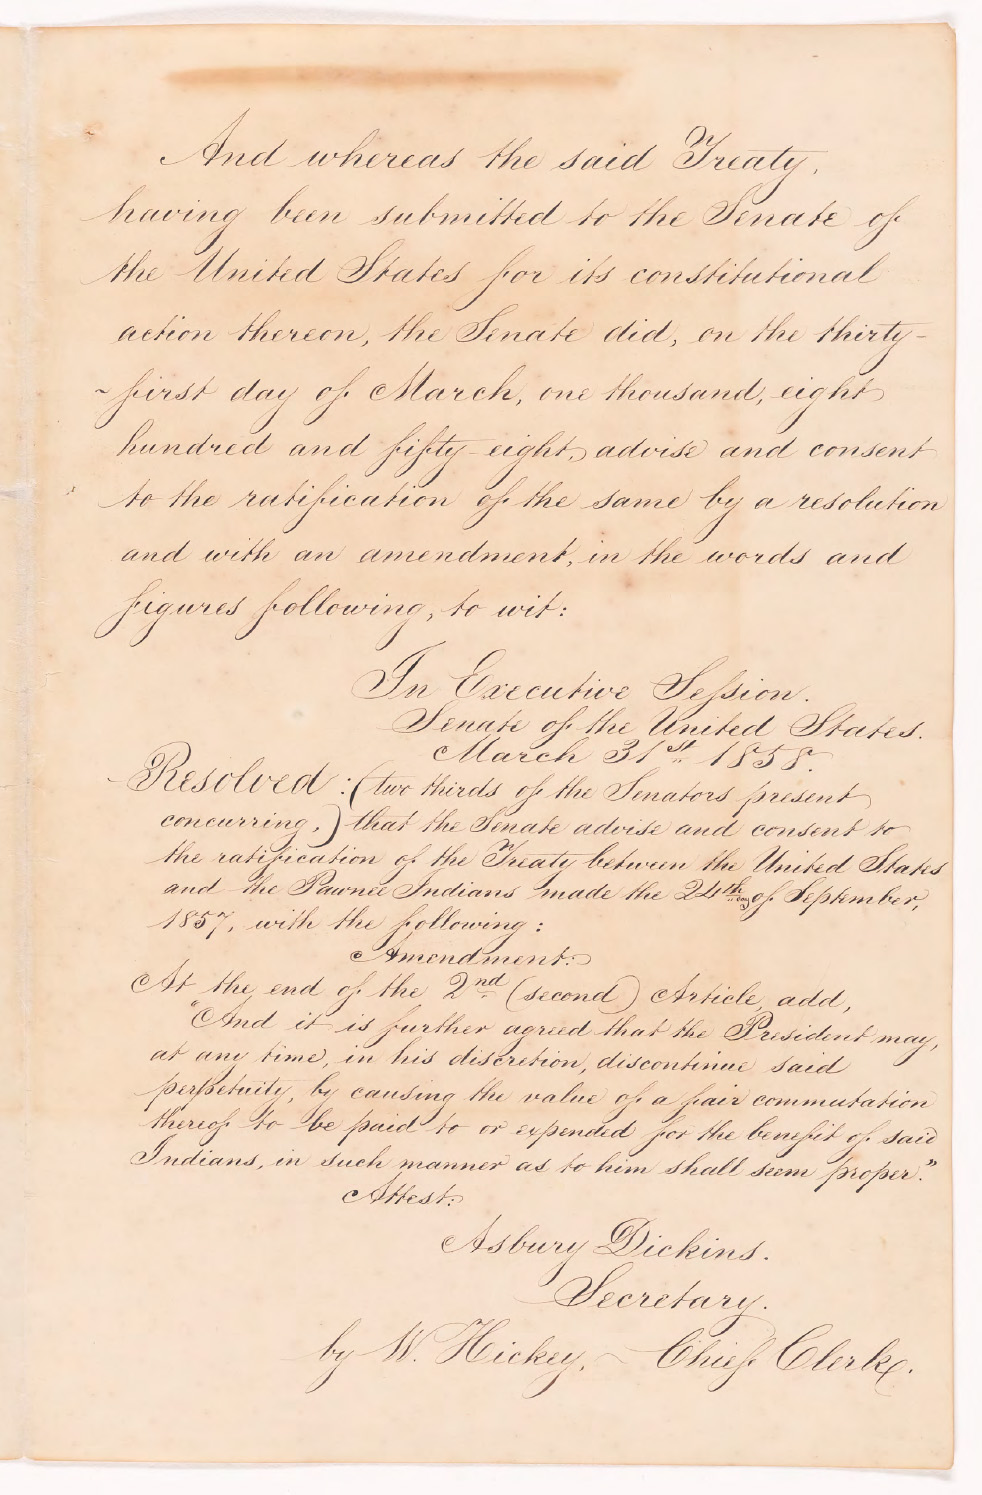 And whereas the said Treaty,
having been submitted to the Senate of
the United States for its constitutional
action thereon, the Senate did, on the thirty-
~first day of March, one thousand, eight
hundred and fifty-eight, advise and consent
to the ratification of the same by a resolution
and with an amendment, in the words and
figures following, to wit:
In Executive Session.
Senate of the United States.
March 31st 1858.
Resolved: (two thirds of the Senators present
concurring,) that the Senate advise and consent to
the ratification of the Treaty between the United States
and the Pawnee Indians made the 24th day of September,
1857, with the following:
Amendment:
At the end of the 2nd (second) Article, add,
"And it is further agreed that the President may,
at any time, in his discretion, discontinue said
perpetuity, by causing the value of a fair commutation
thereof to be paid to or expended for the benefit of said
Indians, in such manner as to him shall seem proper."
Attest:
Asbury Dickins.
Secretary.
by W. Hickey, ~ Chief Clerk.